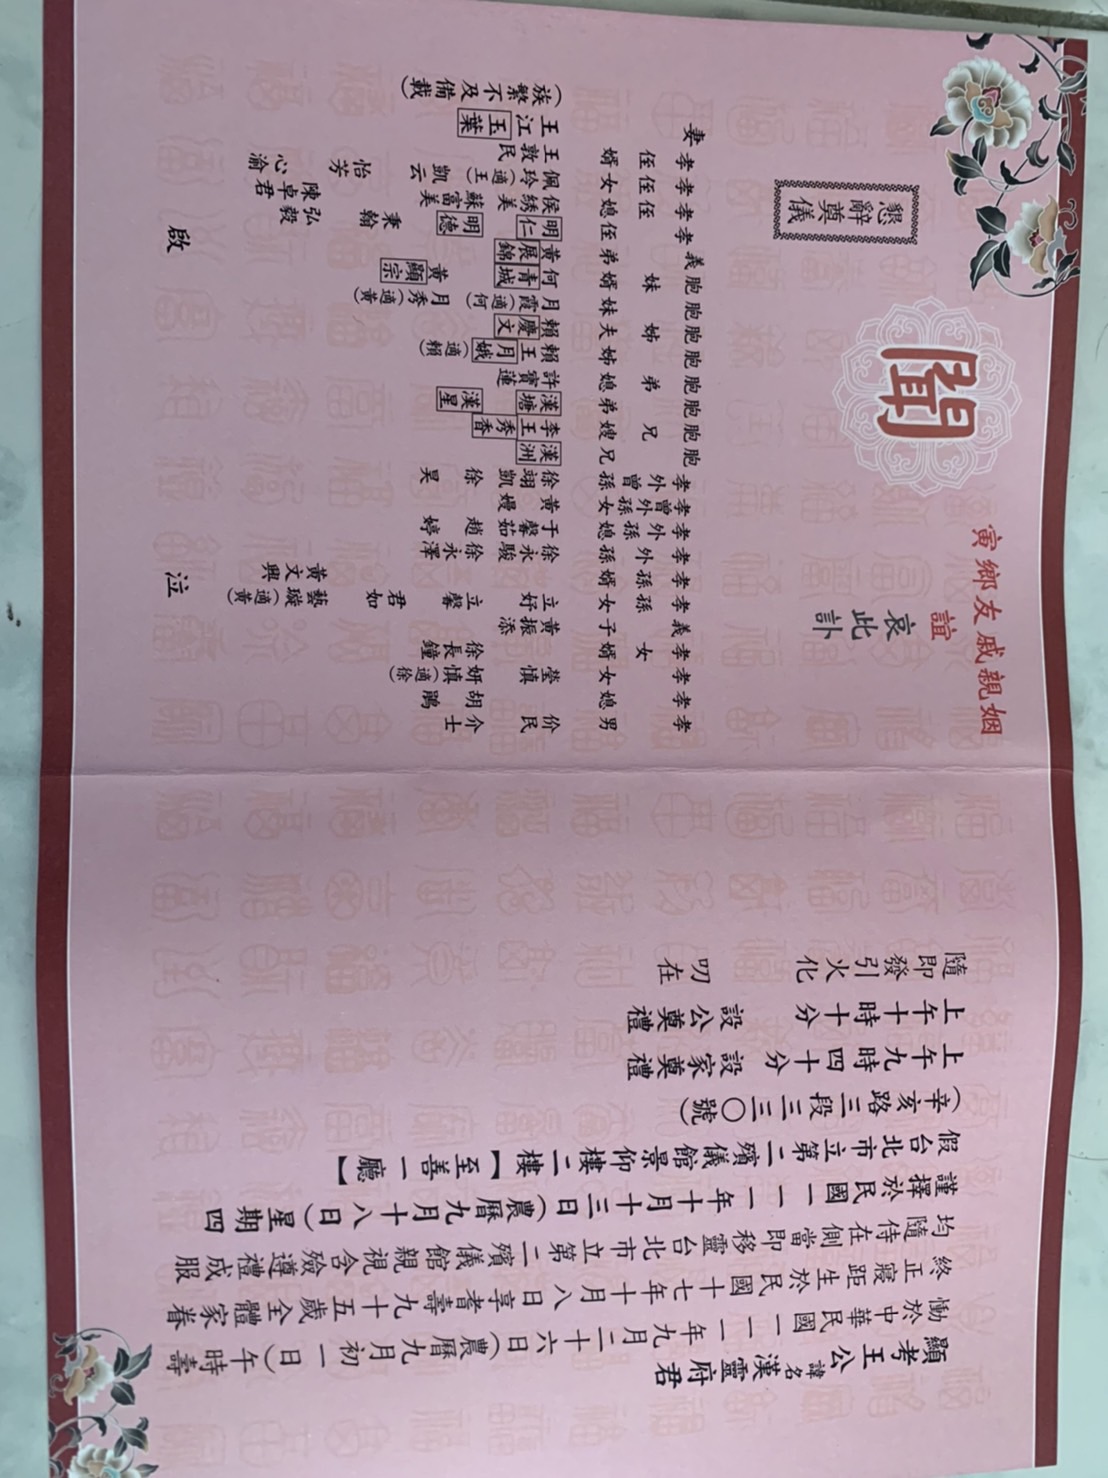 顯考王公諱名漢靈府君
慟於中華民國一一一年九月二十六日(農曆九月初一日)午時壽
終正寢距生於民國十七年十月八日享耆壽九十五歲全體家眷
均隨侍在側當即移靈台北市立第二殯儀館親視含殮遵禮成服
謹擇於民國一一一年十月十三日(農曆九月十八日)星期四
假台北市立第二殯儀館景仰樓二樓【至善一廳】
(辛亥路三段三三〇號)
上午九時四十分 設家奠禮
上午十時十分 設公奠禮
隨即發引火化 叨在
姻親戚友鄉寅
誼
哀此訃
聞
懇辭奠儀
孝男 价民 介士
孝媳 胡鵬
孝女 瑩慎 妍慎(適徐)
孝女婿 徐長鐘
孝義子 黃振添
孝孫女 立妤 立馨 君如 藝璇(適黃)
孝孫婿 黃文興
孝外孫 徐永駿 徐永澤
孝外孫媳 于馨茹 趙婷
孝外曾孫女 黃嫚
孝外曾孫 徐翊凱 徐昊
胞兄 漢洲
胞兄嫂 李王秀香
胞弟 漢塘 漢星
胞弟媳 許寶蓮
胞姊 王月娥(適賴)
胞姊夫 賴慶文
胞妹 月霞(適何) 月秀(適黃)
胞妹婿 何青城 黃顯宗
義弟 黃展錦
孝侄 明仁 明德 秉翰 弘毅
孝侄媳 侯綉美 蘇富美 陳卓君
孝侄女 佩玲(適王) 凱云 怡芳 心渝
孝侄婿 王敦民
妻 王江玉葉
(族繁不及備載)
泣啟